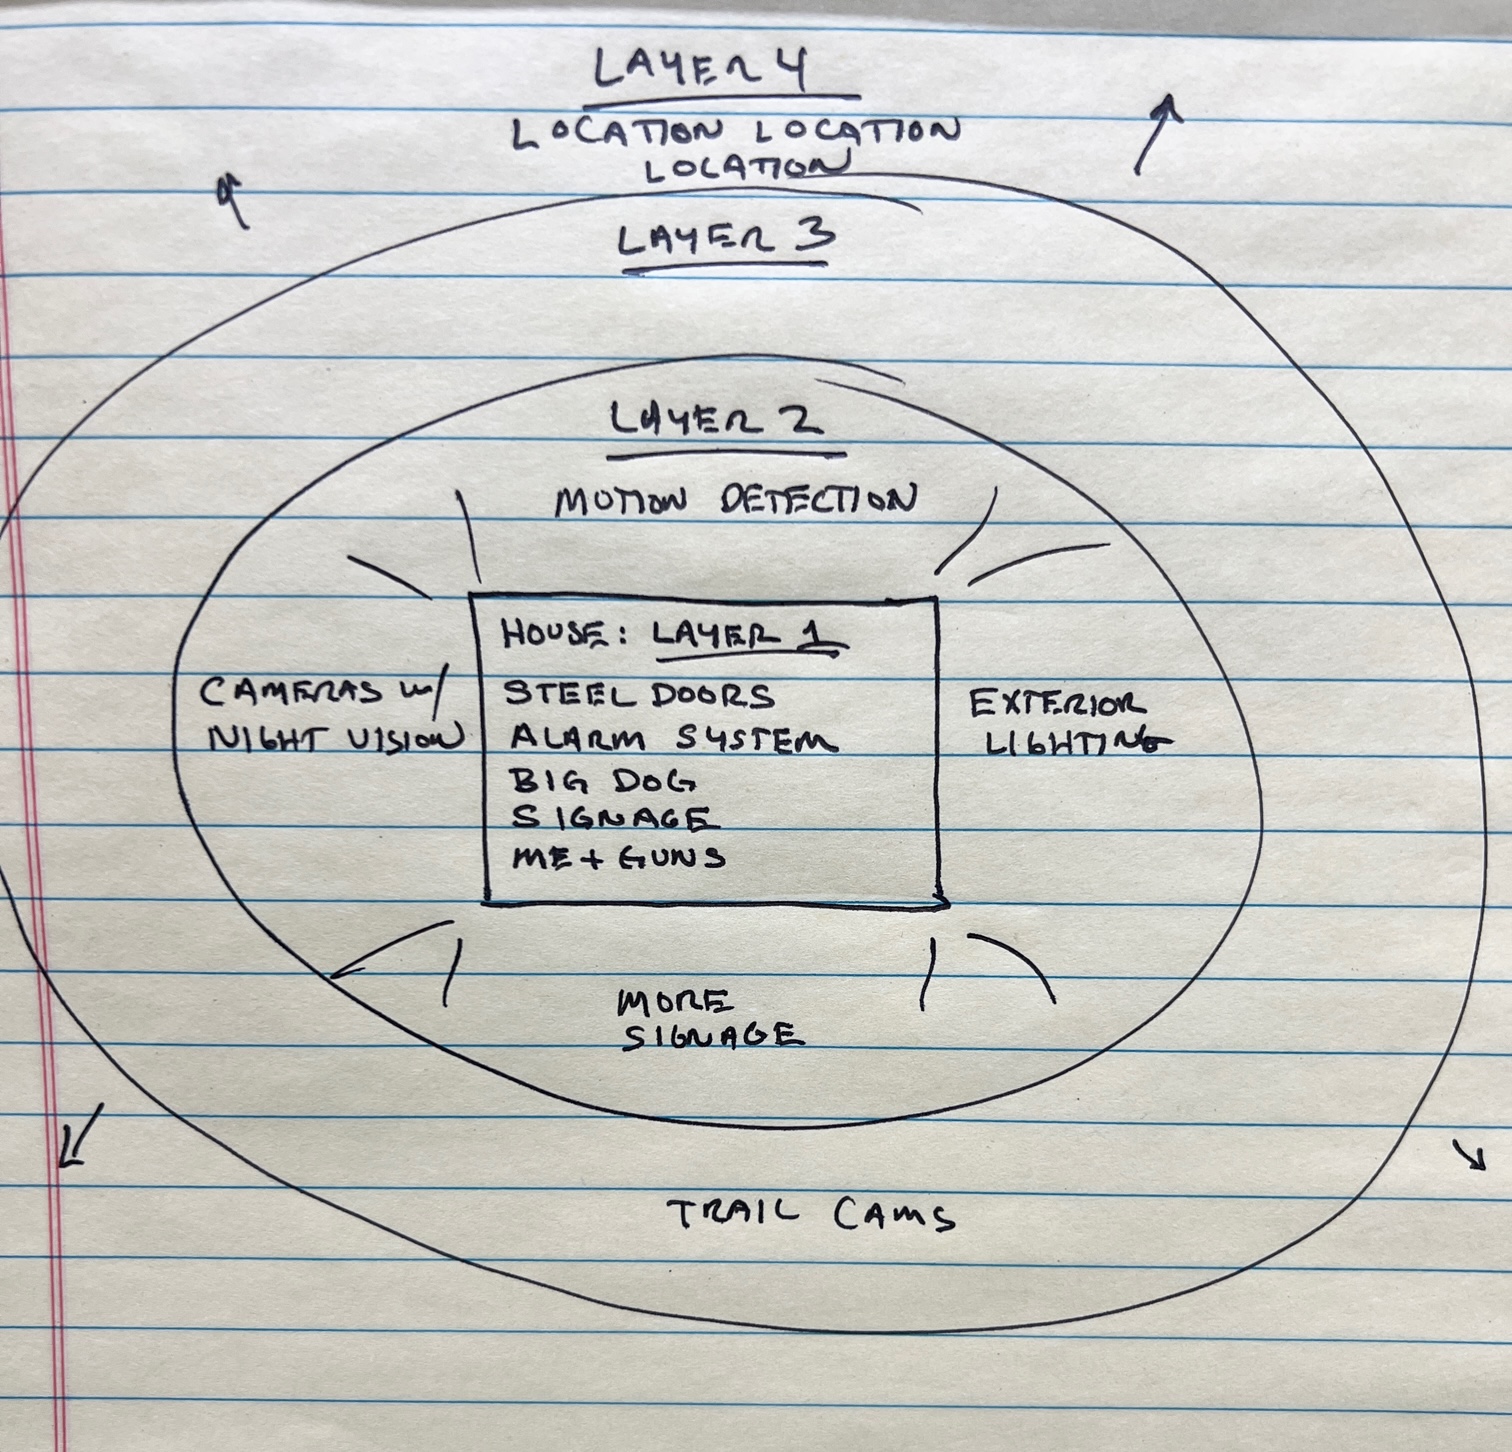 LAYER 4
LOCATION LOCATION
LOCATION
LAYER 3
LAYER 2
MOTION DETECTION
CAMERAS w/
NIGHT VISION
HOUSE: LAYER 1
STEEL DOORS
ALARM SYSTEM
BIG DOG
SIGNAGE
ME + GUNS
EXTERIOR
LIGHTING
MORE
SIGNAGE
TRAIL CAMS